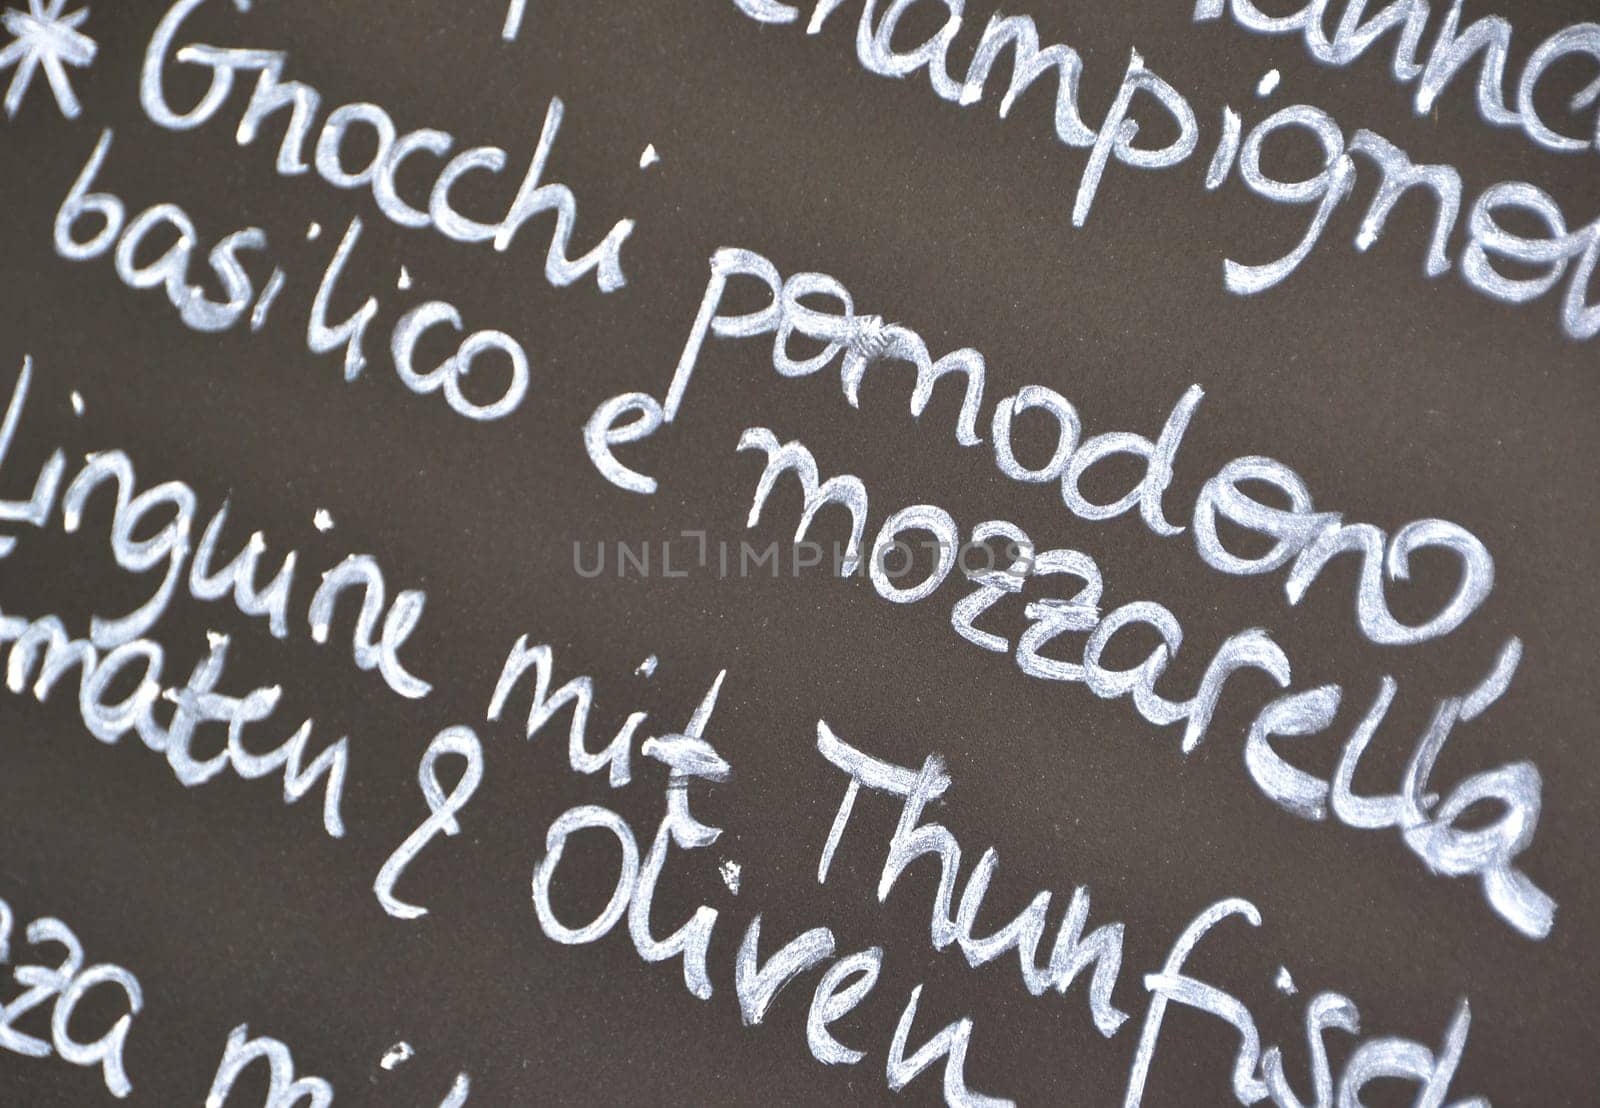 Champignon
* Gnocchi pomodoro,
basilico e mozzarella
Linguine mit Thunfisch
maten & Oliven
zza mi
UNLIMPHOTOS